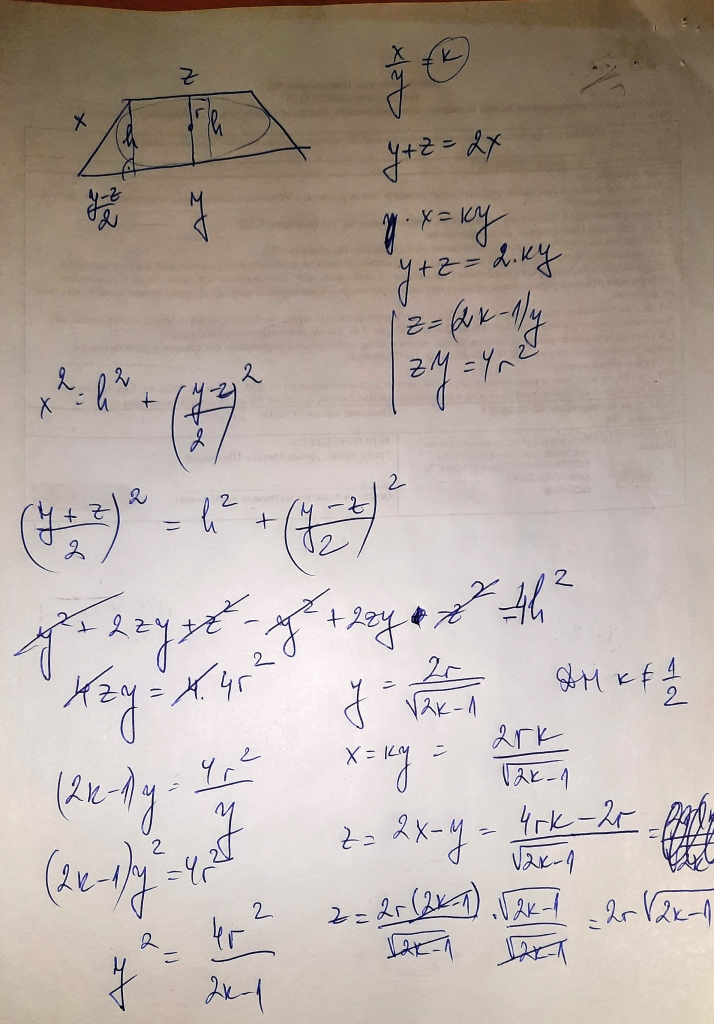 z
x
h
r
h
y-z/2
y
x/y = k
y+z = 2x
x = ky
y+z = 2.ky
z = (2k-1)y
zy = 4r²
x² = h² + ((y-z)/2)²
((y+z)/2)² = h² + ((y-z)/2)²
y² + 2zy + z² - y² + 2zy - z² = 4h²
4zy = 4. 4r²
y = 2r/√(2k-1)
ДМ k ≠ 1/2
(2k-1)y = 4r²/y
x = ky = 2rk/√(2k-1)
(2k-1)y² = 4r²
z = 2x-y = (4rk-2r)/√(2k-1) =
y² = 4r²/(2k-1)
z = 2r(2k-1)/√(2k-1) . √(2k-1)/√(2k-1) = 2r√(2k-1)